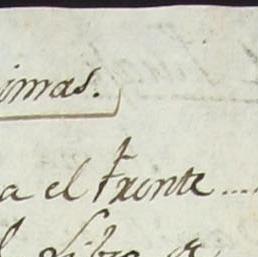 imas.
a el frente....
l Libro